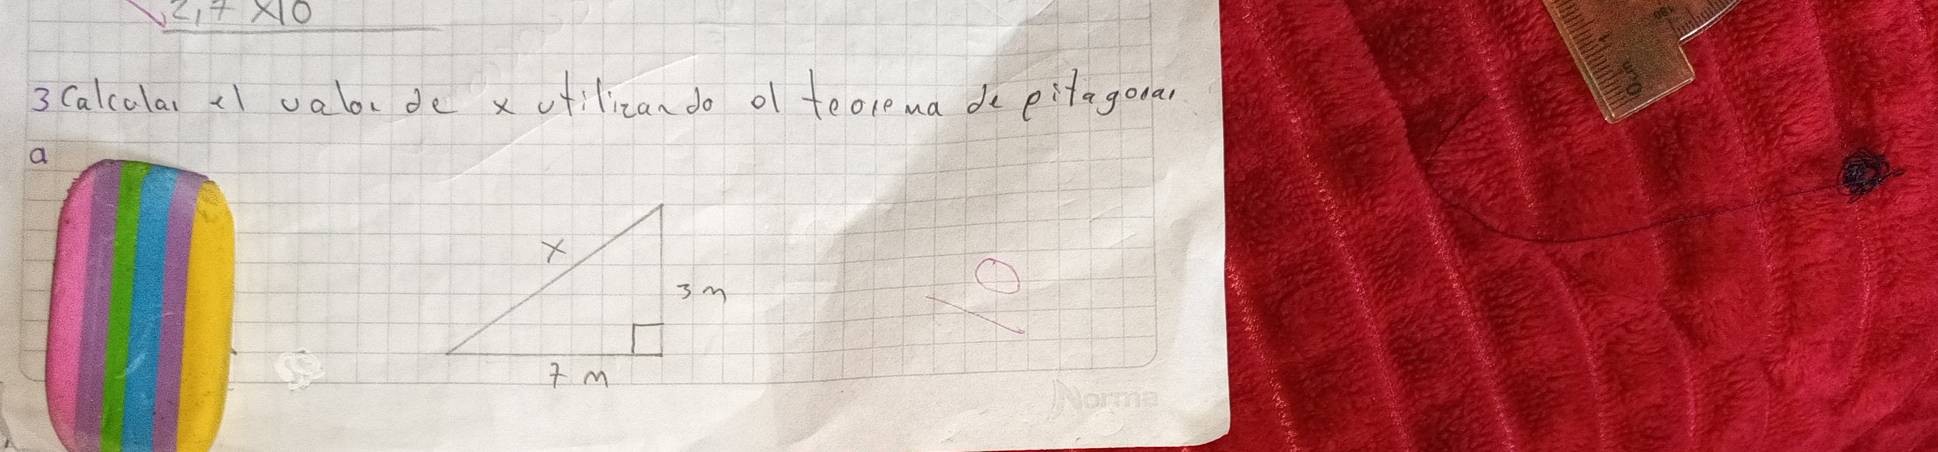 2,7 x10
3 Calcular el valor de x utilizando el teorema de pitagoras
a
x
3 m
7 m
Norma
0 cm